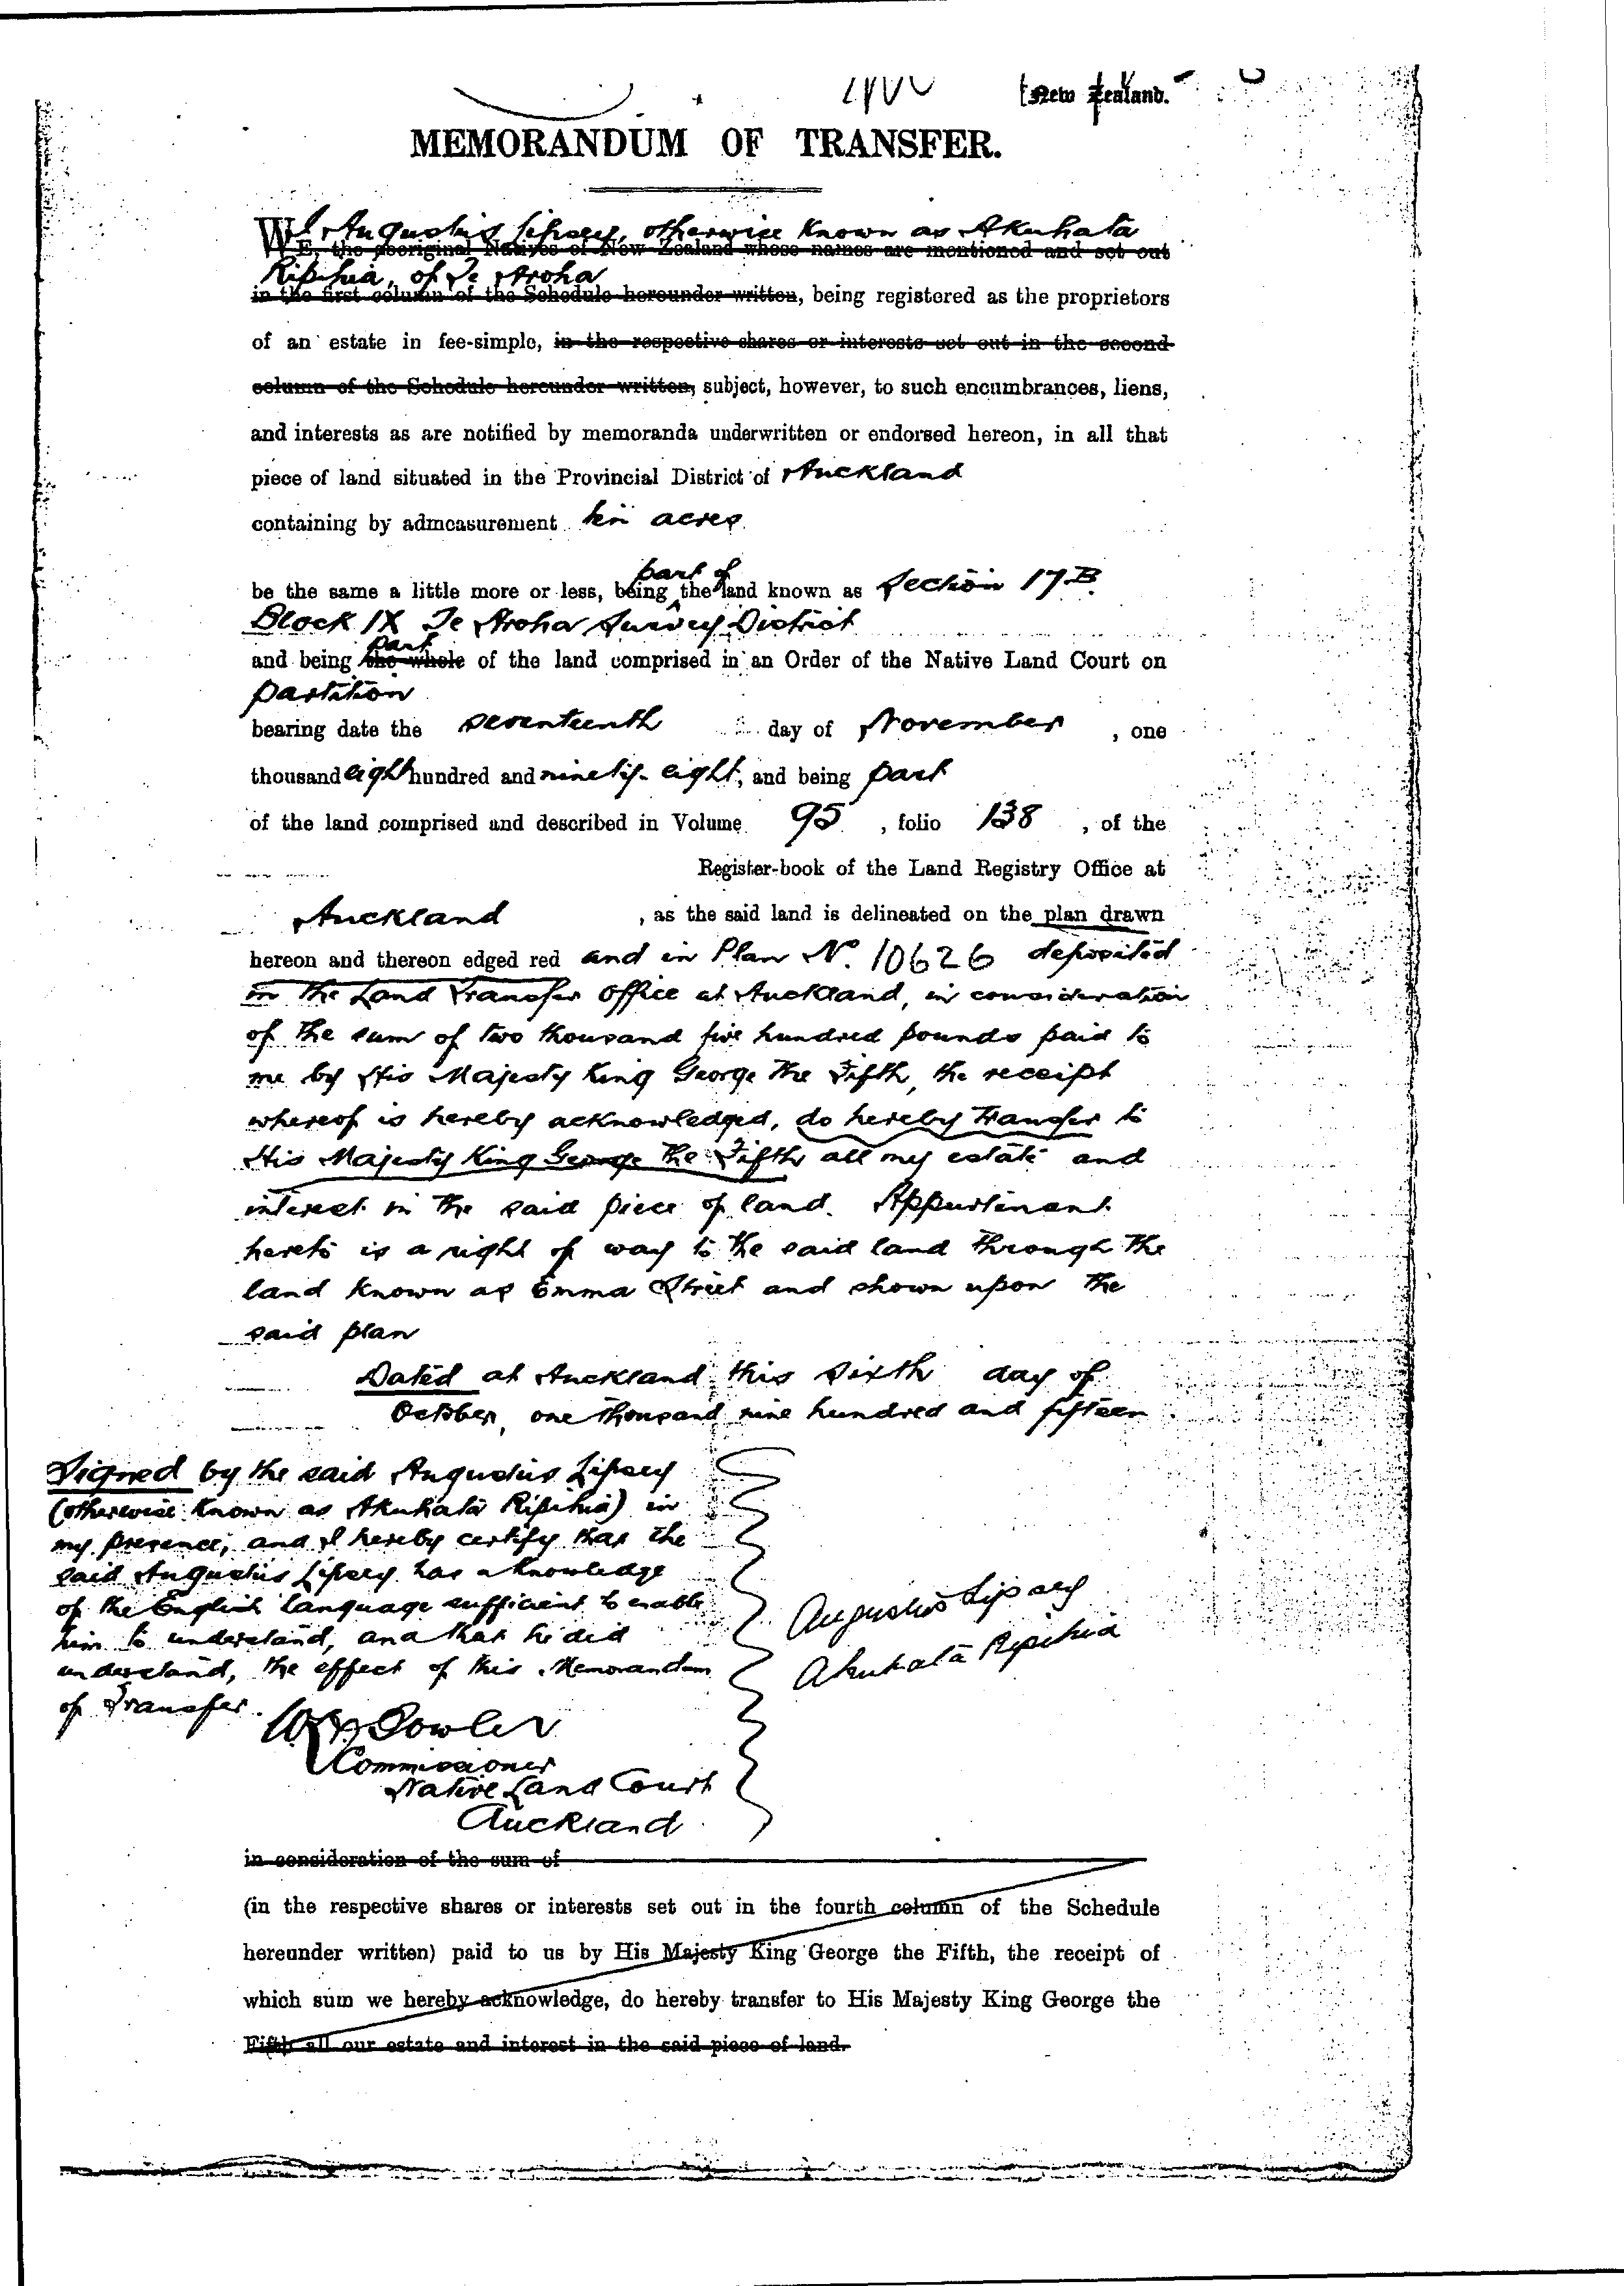 New Zealand.
MEMORANDUM OF TRANSFER.
I Augustus Lipsey, otherwise known as Akuhata
WE, the aboriginal Natives of New Zealand whose names are mentioned and set out
Ripihia, of Te Aroha
in the first column of the Schedule hereunder written, being registered as the proprietors
of an estate in fee-simple, in the respective shares or interests set out in the second
column of the Schedule hereunder written, subject, however, to such encumbrances, liens,
and interests as are notified by memoranda underwritten or endorsed hereon, in all that
piece of land situated in the Provincial District of Auckland
containing by admeasurement ten acres
part of
be the same a little more or less, being the land known as Section 17B
Block IX Te Aroha Survey District
part
and being the whole of the land comprised in an Order of the Native Land Court on
partition
bearing date the seventeenth day of November, one
thousand eight hundred and ninety-eight, and being part
of the land comprised and described in Volume 95, folio 138, of the
Register-book of the Land Registry Office at
Auckland, as the said land is delineated on the plan drawn
hereon and thereon edged red and in Plan No. 10626 deposited
in the Land Transfer Office at Auckland, in consideration
of the sum of two thousand five hundred pounds paid to
me by His Majesty King George the Fifth, the receipt
whereof is hereby acknowledged, do hereby Transfer to
His Majesty King George the Fifth all my estate and
interest in the said piece of land. Appurtenant
hereto is a right of way to the said land through the
land known as Emma Street and shown upon the
said plan
Dated at Auckland this sixth day of
October, one thousand nine hundred and fifteen
Signed by the said Augustus Lipsey
(otherwise known as Akuhata Ripihia) in
my presence, and I hereby certify that the
said Augustus Lipsey has a knowledge
of the English language sufficient to enable
him to understand, and that he did
understand, the effect of this Memorandum
of Transfer.
Augustus Lipsey
Akuhata Ripihia
Bowler
Commissioner
Native Land Court
Auckland
in consideration of the sum of
(in the respective shares or interests set out in the fourth column of the Schedule
hereunder written) paid to us by His Majesty King George the Fifth, the receipt of
which sum we hereby acknowledge, do hereby transfer to His Majesty King George the
Fifth all our estate and interest in the said piece of land.